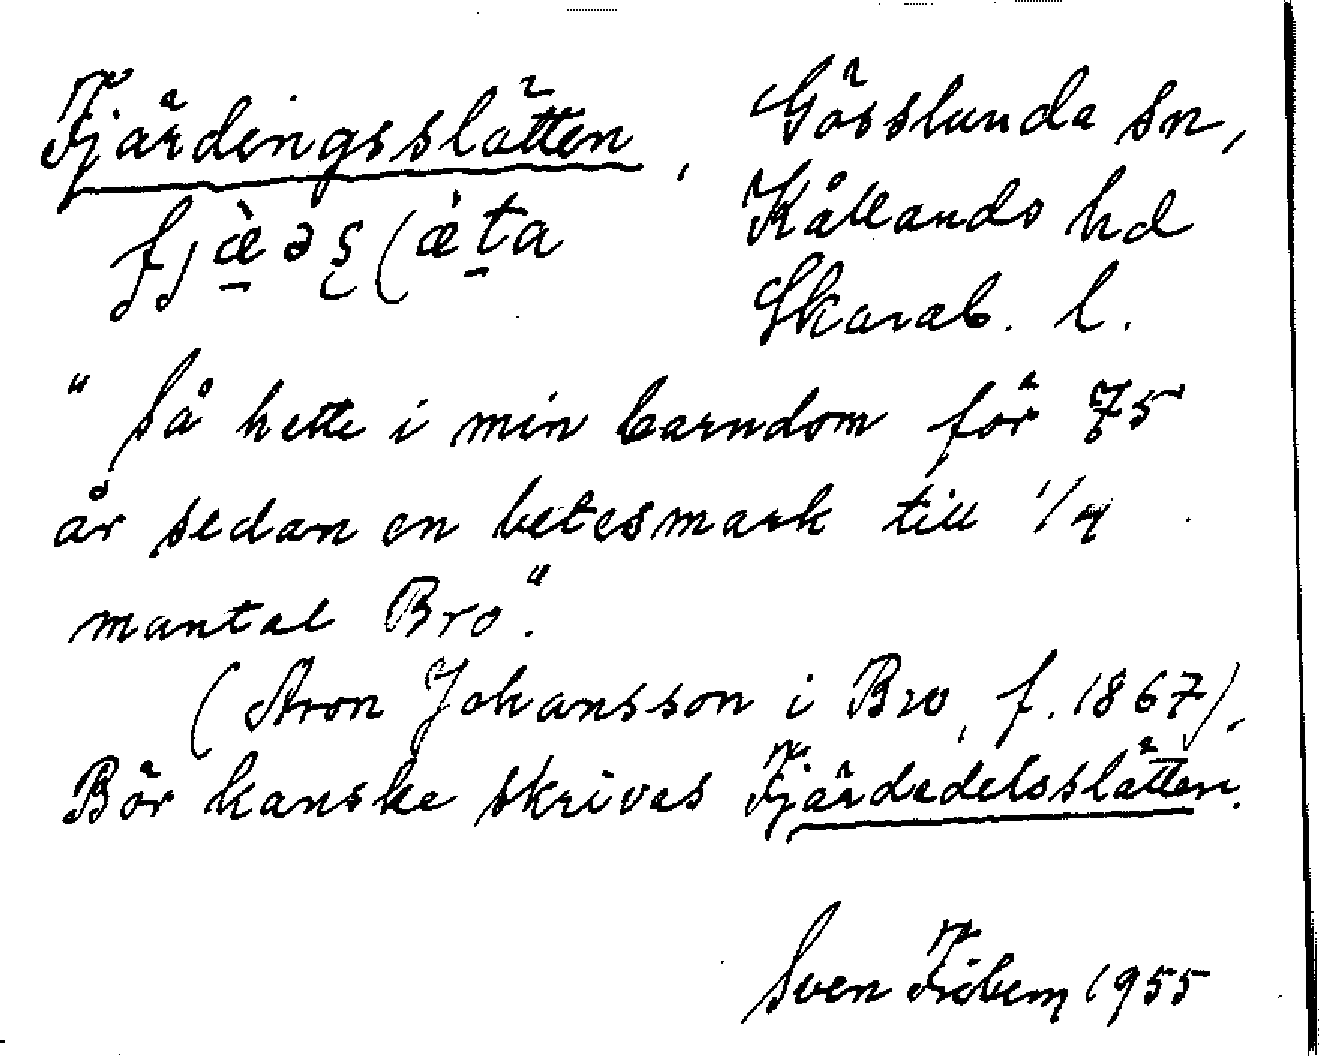 Fjärdingsslätten, Gösslunda sn,
Kållands hd
Skarab. l.
"Så hette i min barndom för 75
år sedan en betesmark till 1/4
mantal Bro".
(Aron Johansson i Bro, f. 1867).
Bör kanske skrivas Fjärdedelsslätten.
Sven Fröbem 1955